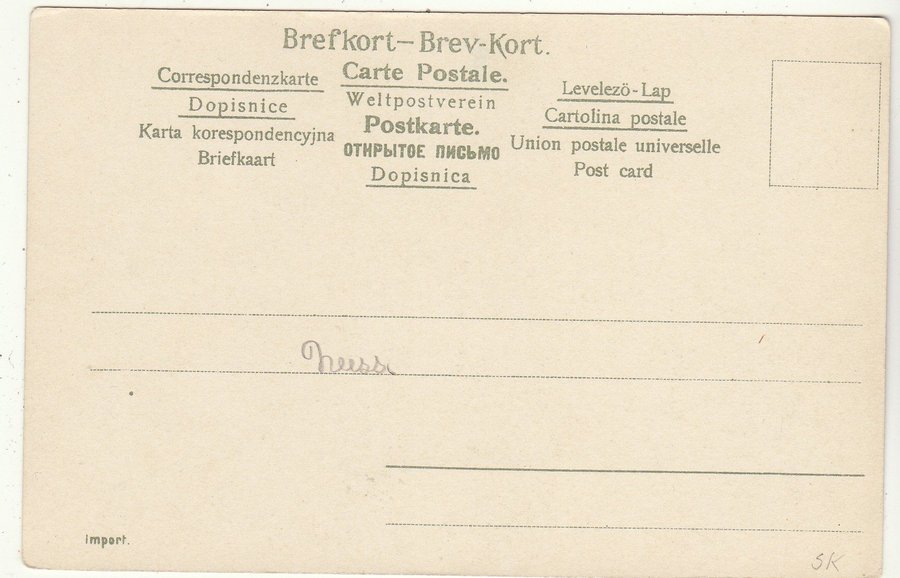 Brefkort–Brev-Kort.
Correspondenzkarte
Dopisnice
Karta korespondencyjna
Briefkaart
Carte Postale.
Weltpostverein
Postkarte.
ОТКРЫТОЕ ПИСЬМО
Dopisnica
Levelezö-Lap
Cartolina postale
Union postale universelle
Post card
Neuss
Import.
SK